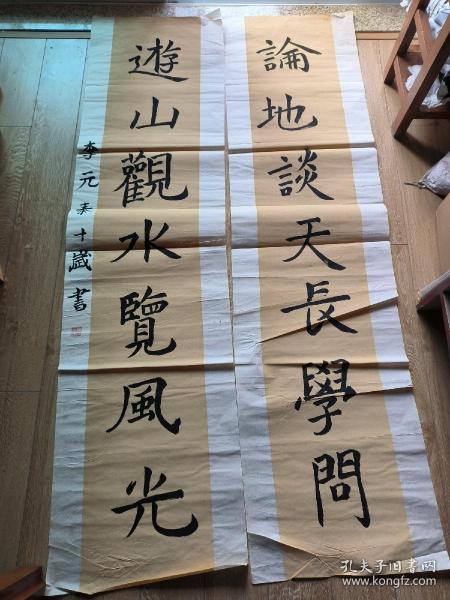 論地談天長學問
遊山觀水覽風光
李元春十歲書
孔夫子旧书网
www.kongfz.com